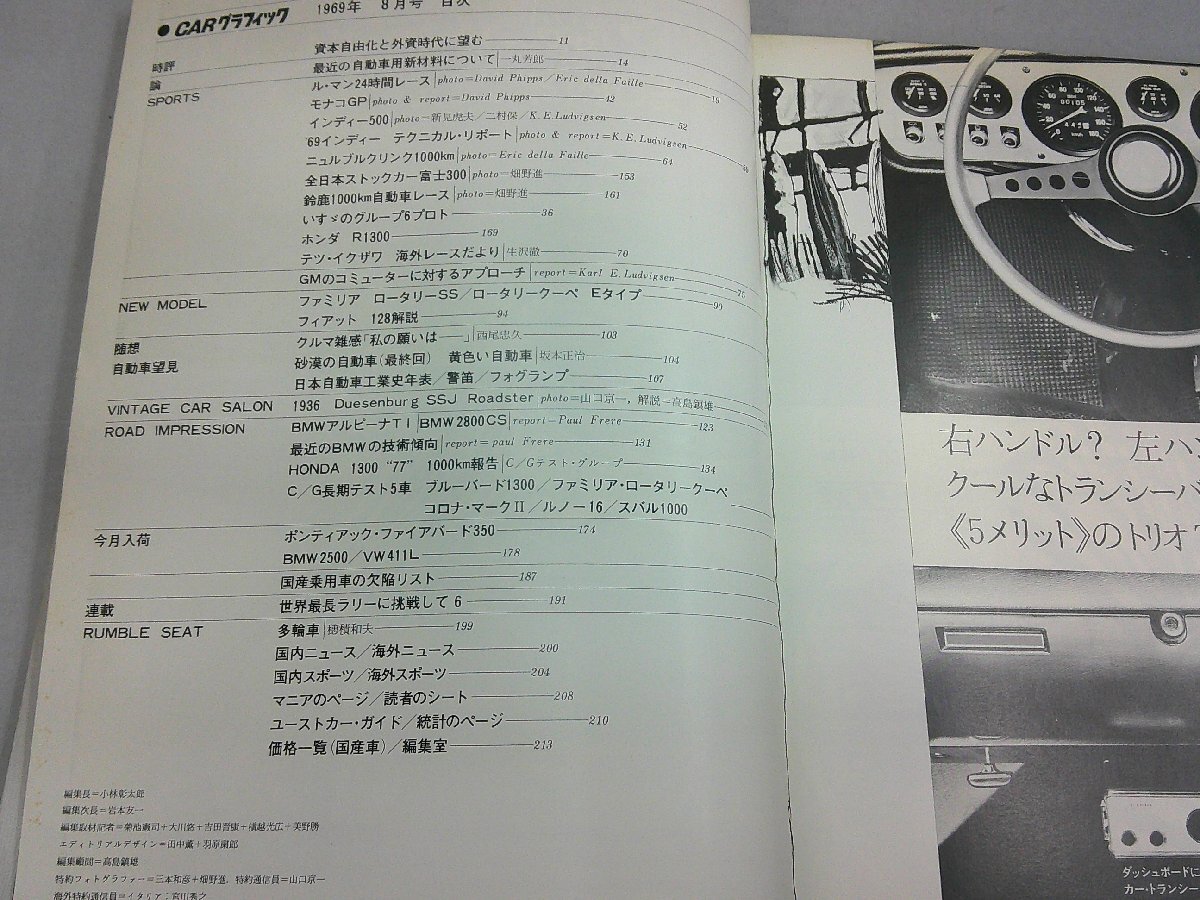 ● CARグラフィック 1969年 8月号 目次
時評 資本自由化と外資時代に望む 11
論 最近の自動車用新材料について 一丸芳郎 14
SPORTS ル・マン24時間レース photo=David Phipps/Eric della Faille 18
モナコGP photo & report=David Phipps 42
インディー500 photo=新見虎夫/二村保/K.E.Ludvigsen 52
'69インディー テクニカル・リポート photo & report=K.E.Ludvigsen
ニュルブルクリンク1000km photo=Eric della Faille 64
全日本ストックカー富士300 photo=畑野進 153
鈴鹿1000km自動車レース photo=畑野進 161
いすゞのグループ6プロト 36
ホンダ R1300 169
テツ・イクザワ 海外レースだより 生沢徹 70
GMのコミューターに対するアプローチ report=Karl E.Ludvigsen 75
NEW MODEL ファミリア ロータリーSS/ロータリークーペ Eタイプ 90
フィアット 128解説 94
随想 クルマ雑感「私の願いは——」 西尾忠久 103
自動車望見 砂漠の自動車(最終回) 黄色い自動車 坂本正治 104
日本自動車工業史年表/警笛/フォグランプ 107
VINTAGE CAR SALON 1936 Duesenburg SSJ Roadster photo=山口京一, 解説=高島鎮雄
ROAD IMPRESSION BMWアルピーナTI BMW2800CS report=Paul Frere 123
最近のBMWの技術傾向 report=paul Frere 131
HONDA 1300 "77" 1000km報告 C/Gテスト・グループ 134
C/G長期テスト5車 ブルーバード1300/ファミリア・ロータリークーペ
コロナ・マークII/ルノー16/スバル1000
今月入荷 ポンティアック・ファイアバード350 174
BMW2500/VW411L 178
国産乗用車の欠陥リスト 187
連載 世界最長ラリーに挑戦して 6 191
RUMBLE SEAT 多輪車 穂積和夫 199
国内ニュース/海外ニュース 200
国内スポーツ/海外スポーツ 204
マニアのページ/読者のシート 208
ユーストカー・ガイド/統計のページ 210
価格一覧(国産車)/編集室 213
編集長=小林彰太郎
編集次長=岩本友一
編集取材記者=菊池憲司+大川悠+吉田育康+横越光広+美野勝
エディトリアルデザイン=田中薫+羽原
編集顧問=高島鎮雄
特約フォトグラファー=三本和彦+畑野進, 特約通信員=山口京一
海外特約通信員=イタリア:宮川秀之
右ハンドル? 左ハン
クールなトランシーバ
《5メリット》のトリオ
ダッシュボードに
カー・トランシー